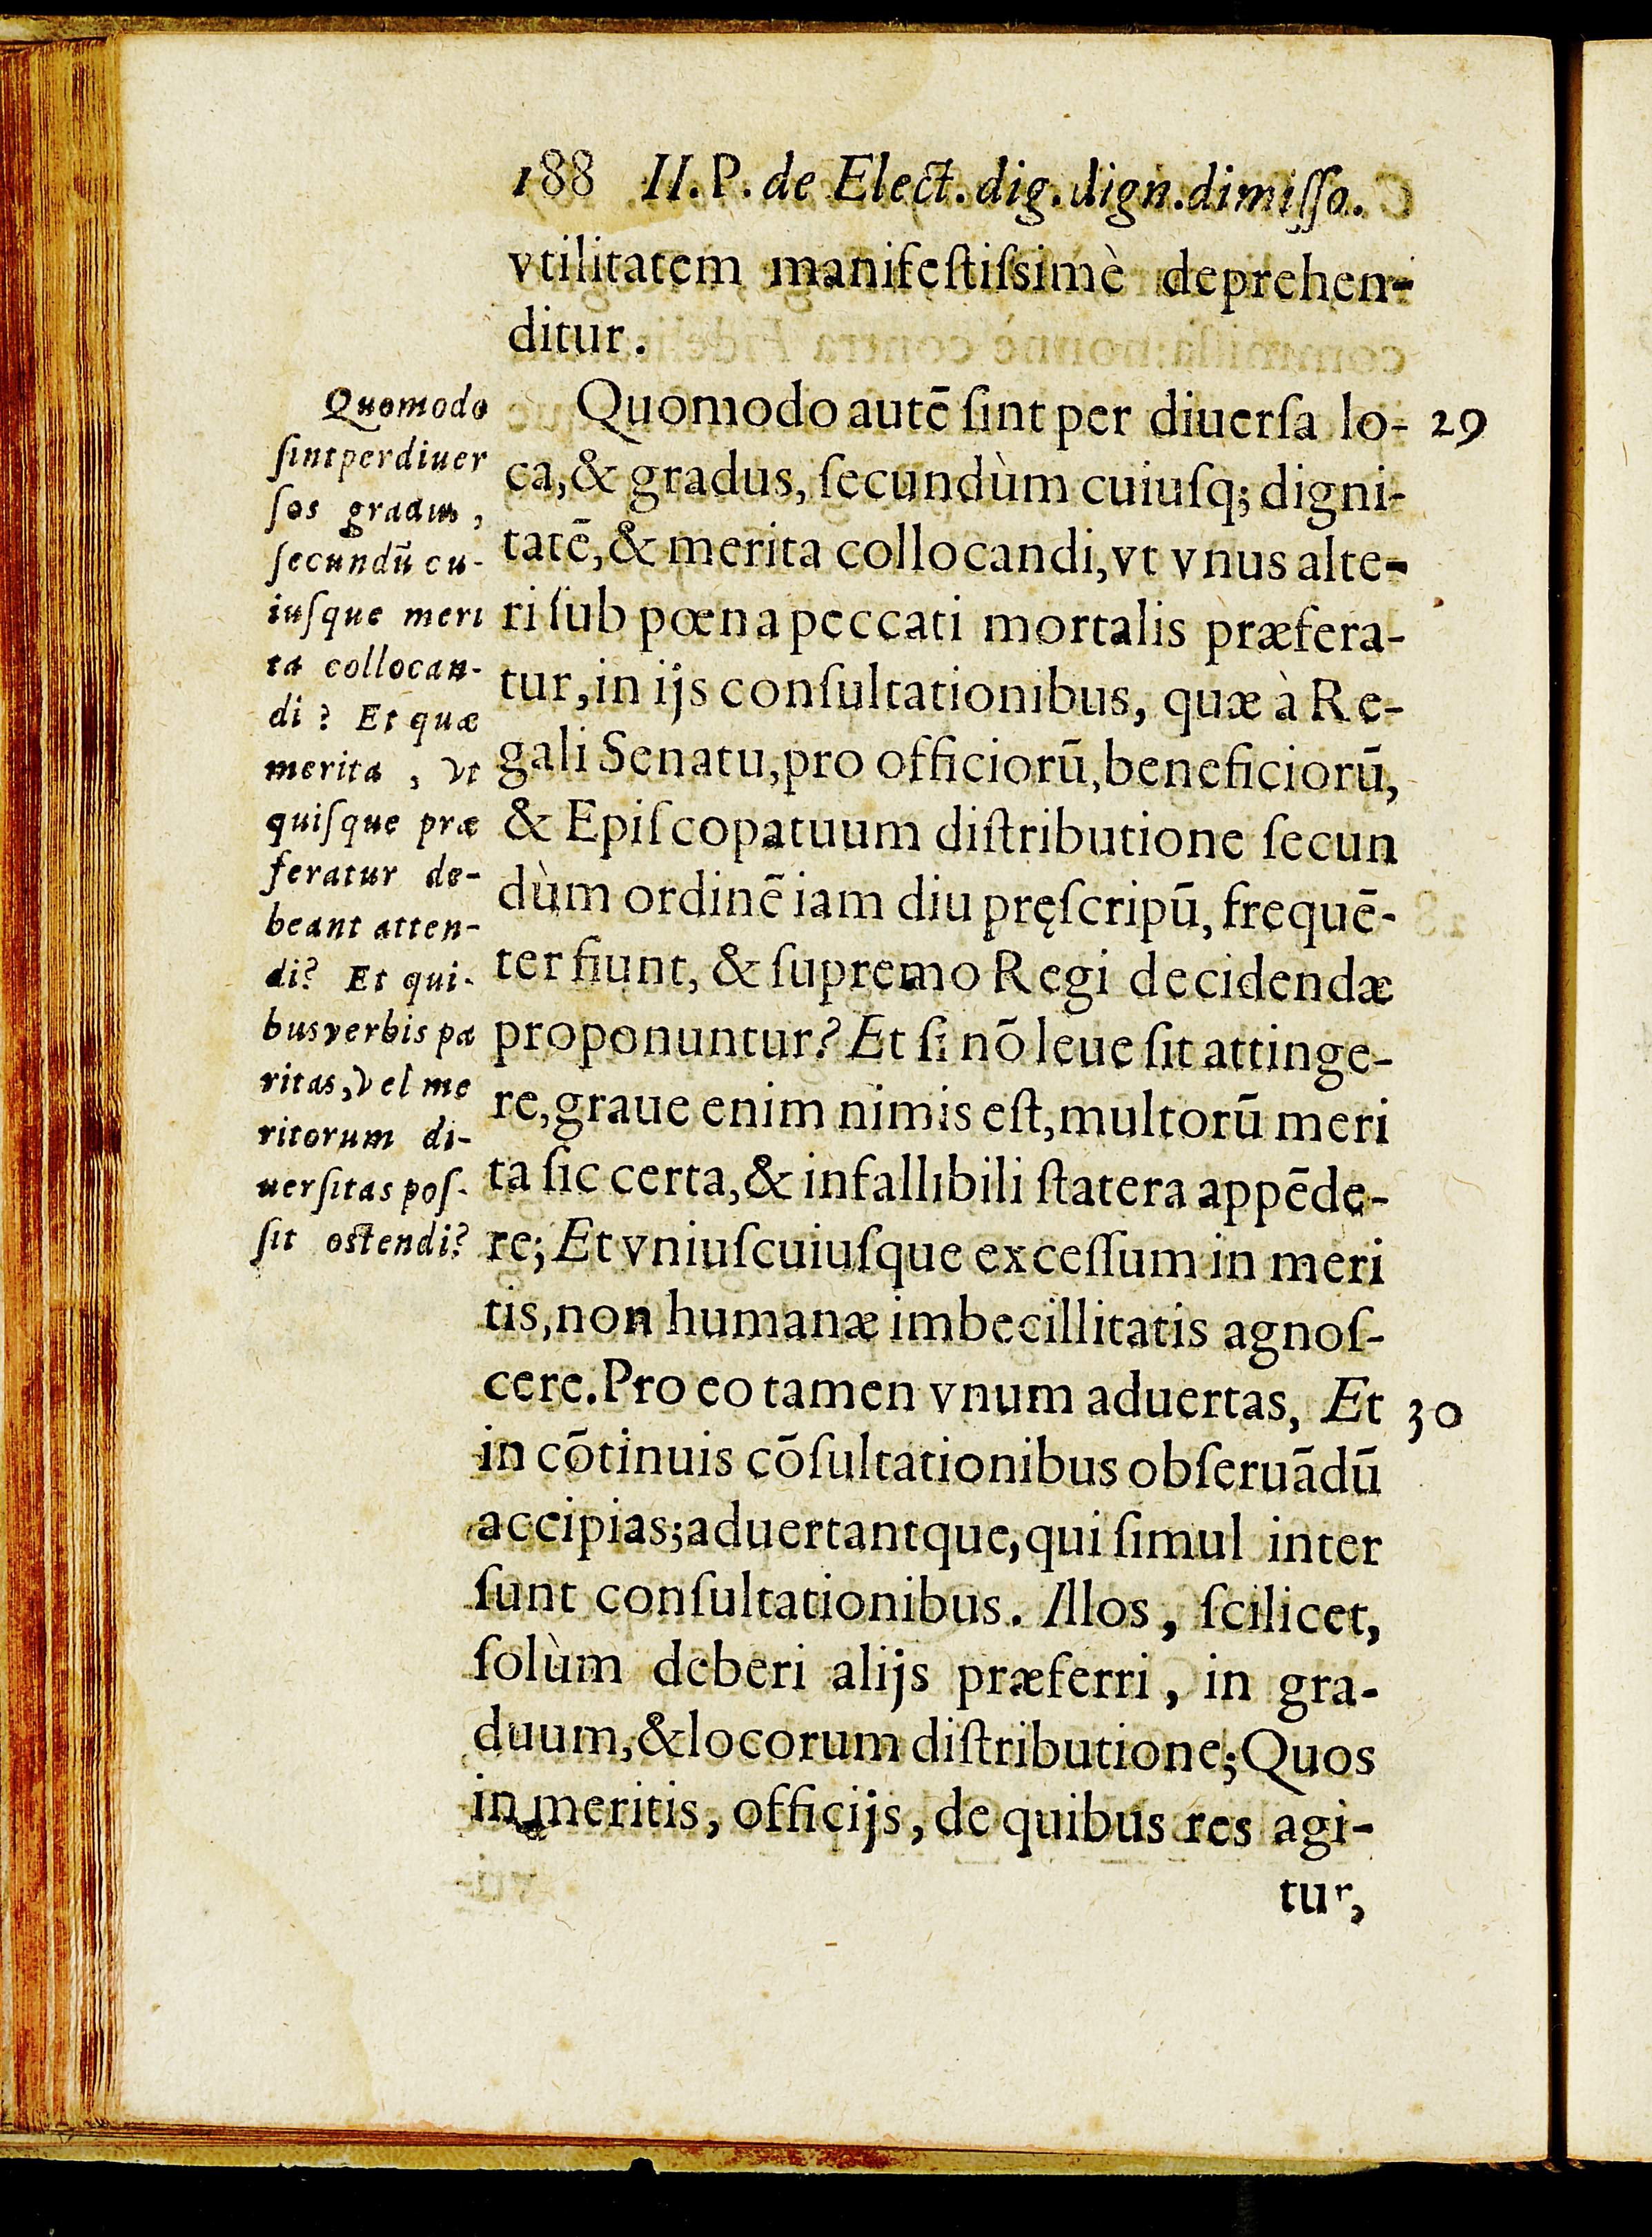 188 II. P. de Elect. dig. dign. dimisso.
vtilitatem manifestissimè deprehen-
ditur.
Quomodo
sint per diuer
sos gradus,
secundū cu-
iusque meri
ta collocan-
di? Et quæ
merita, vt
quisque præ
feratur de-
beant atten-
di? Et qui-
bus verbis pa
ritas, vel me
ritorum di-
uersitas pos-
sit ostendi?
Quomodo autē sint per diuersa lo- 29
ca, & gradus, secundùm cuiusq; digni-
tatē, & merita collocandi, vt vnus alte-
ri sub pœna peccati mortalis præfera-
tur, in ijs consultationibus, quæ à Re-
gali Senatu, pro officiorū, beneficiorū,
& Episcopatuum distributione secun
dùm ordinē iam diu pręscripū, frequē-
ter fiunt, & supremo Regi decidendæ
proponuntur? Et si nō leue sit attinge-
re, graue enim nimis est, multorū meri
ta sic certa, & infallibili statera appēde-
re; Et vniuscuiusque excessum in meri
tis, non humanæ imbecillitatis agnos-
cere. Pro eo tamen vnum aduertas, Et 30
in cōtinuis cōsultationibus obseruādū
accipias; aduertantque, qui simul inter
sunt consultationibus. Illos, scilicet,
solùm deberi alijs præferri, in gra-
duum, & locorum distributione; Quos
in meritis, officijs, de quibus res agi-
tur,